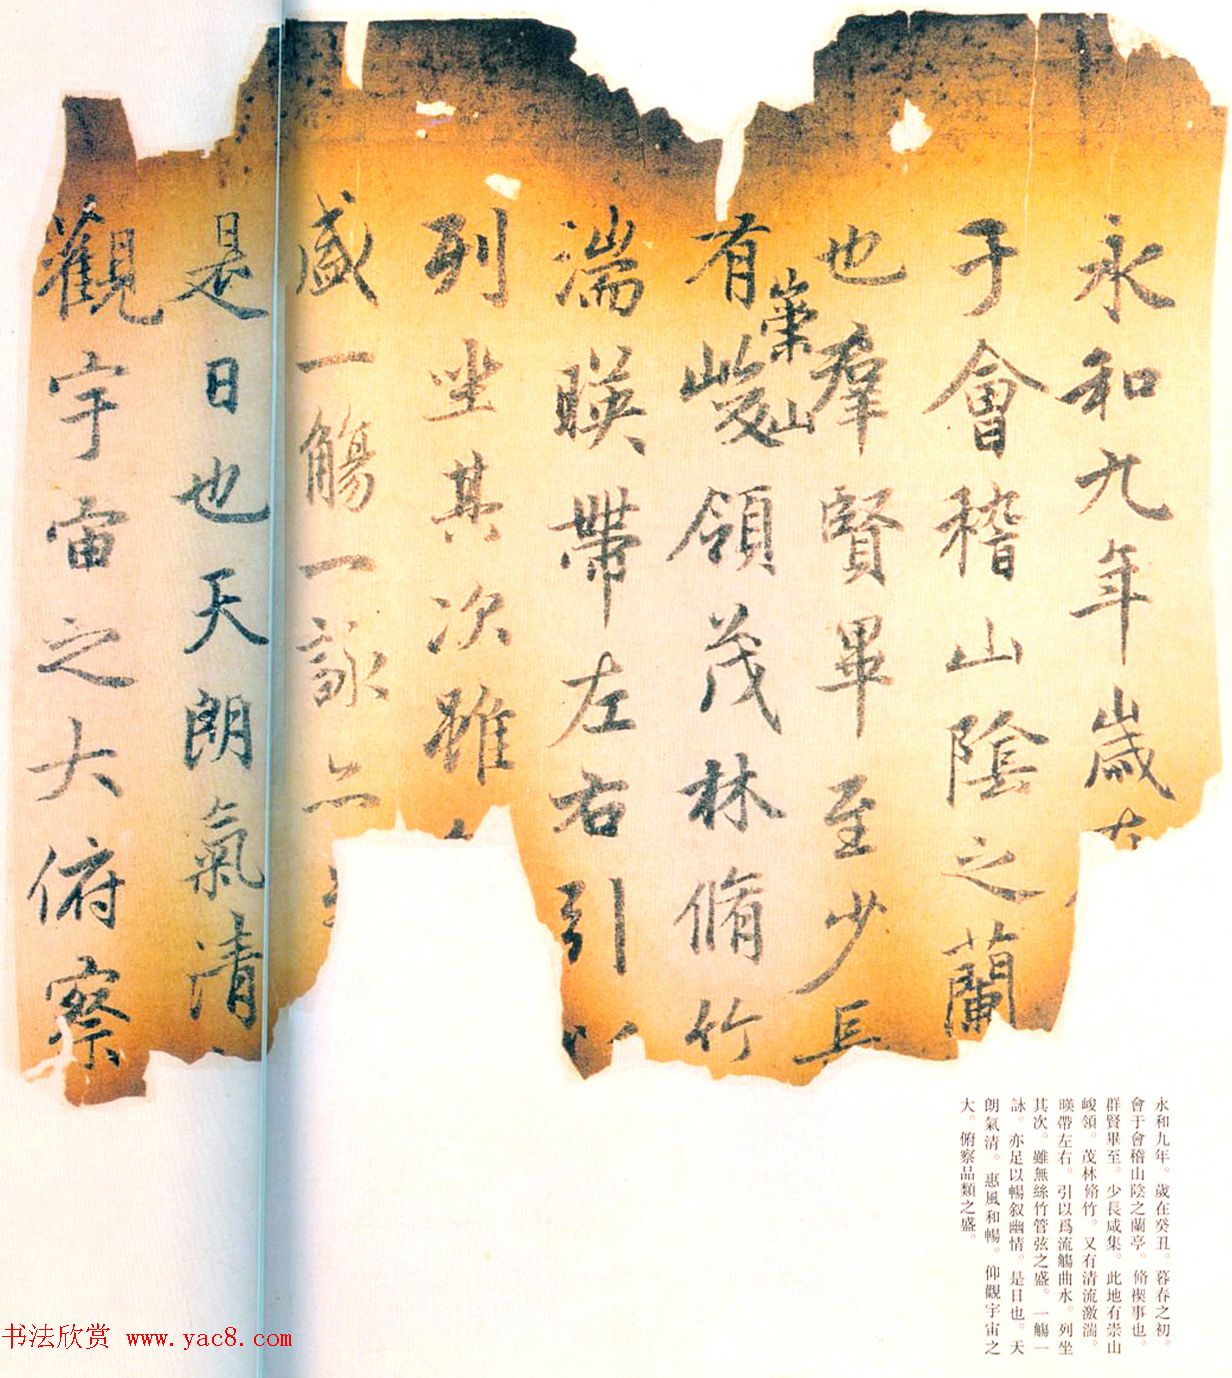 永和九年歲在
于會稽山陰之蘭
也羣賢畢至少長
有峻領茂林脩竹
崇山
湍暎帶左右引以
列坐其次雖
盛一觴一詠亦足
是日也天朗氣清
觀宇宙之大俯察
永和九年。歲在癸丑。暮春之初。
會于會稽山陰之蘭亭。脩禊事也。
群賢畢至。少長咸集。此地有崇山
峻領。茂林脩竹。又有清流激湍。
暎帶左右。引以爲流觴曲水。列坐
其次。雖無絲竹管弦之盛。一觴一
詠。亦足以暢叙幽情。是日也。天
朗氣清。惠風和暢。仰觀宇宙之
大。俯察品類之盛。
书法欣赏 www.yac8.com